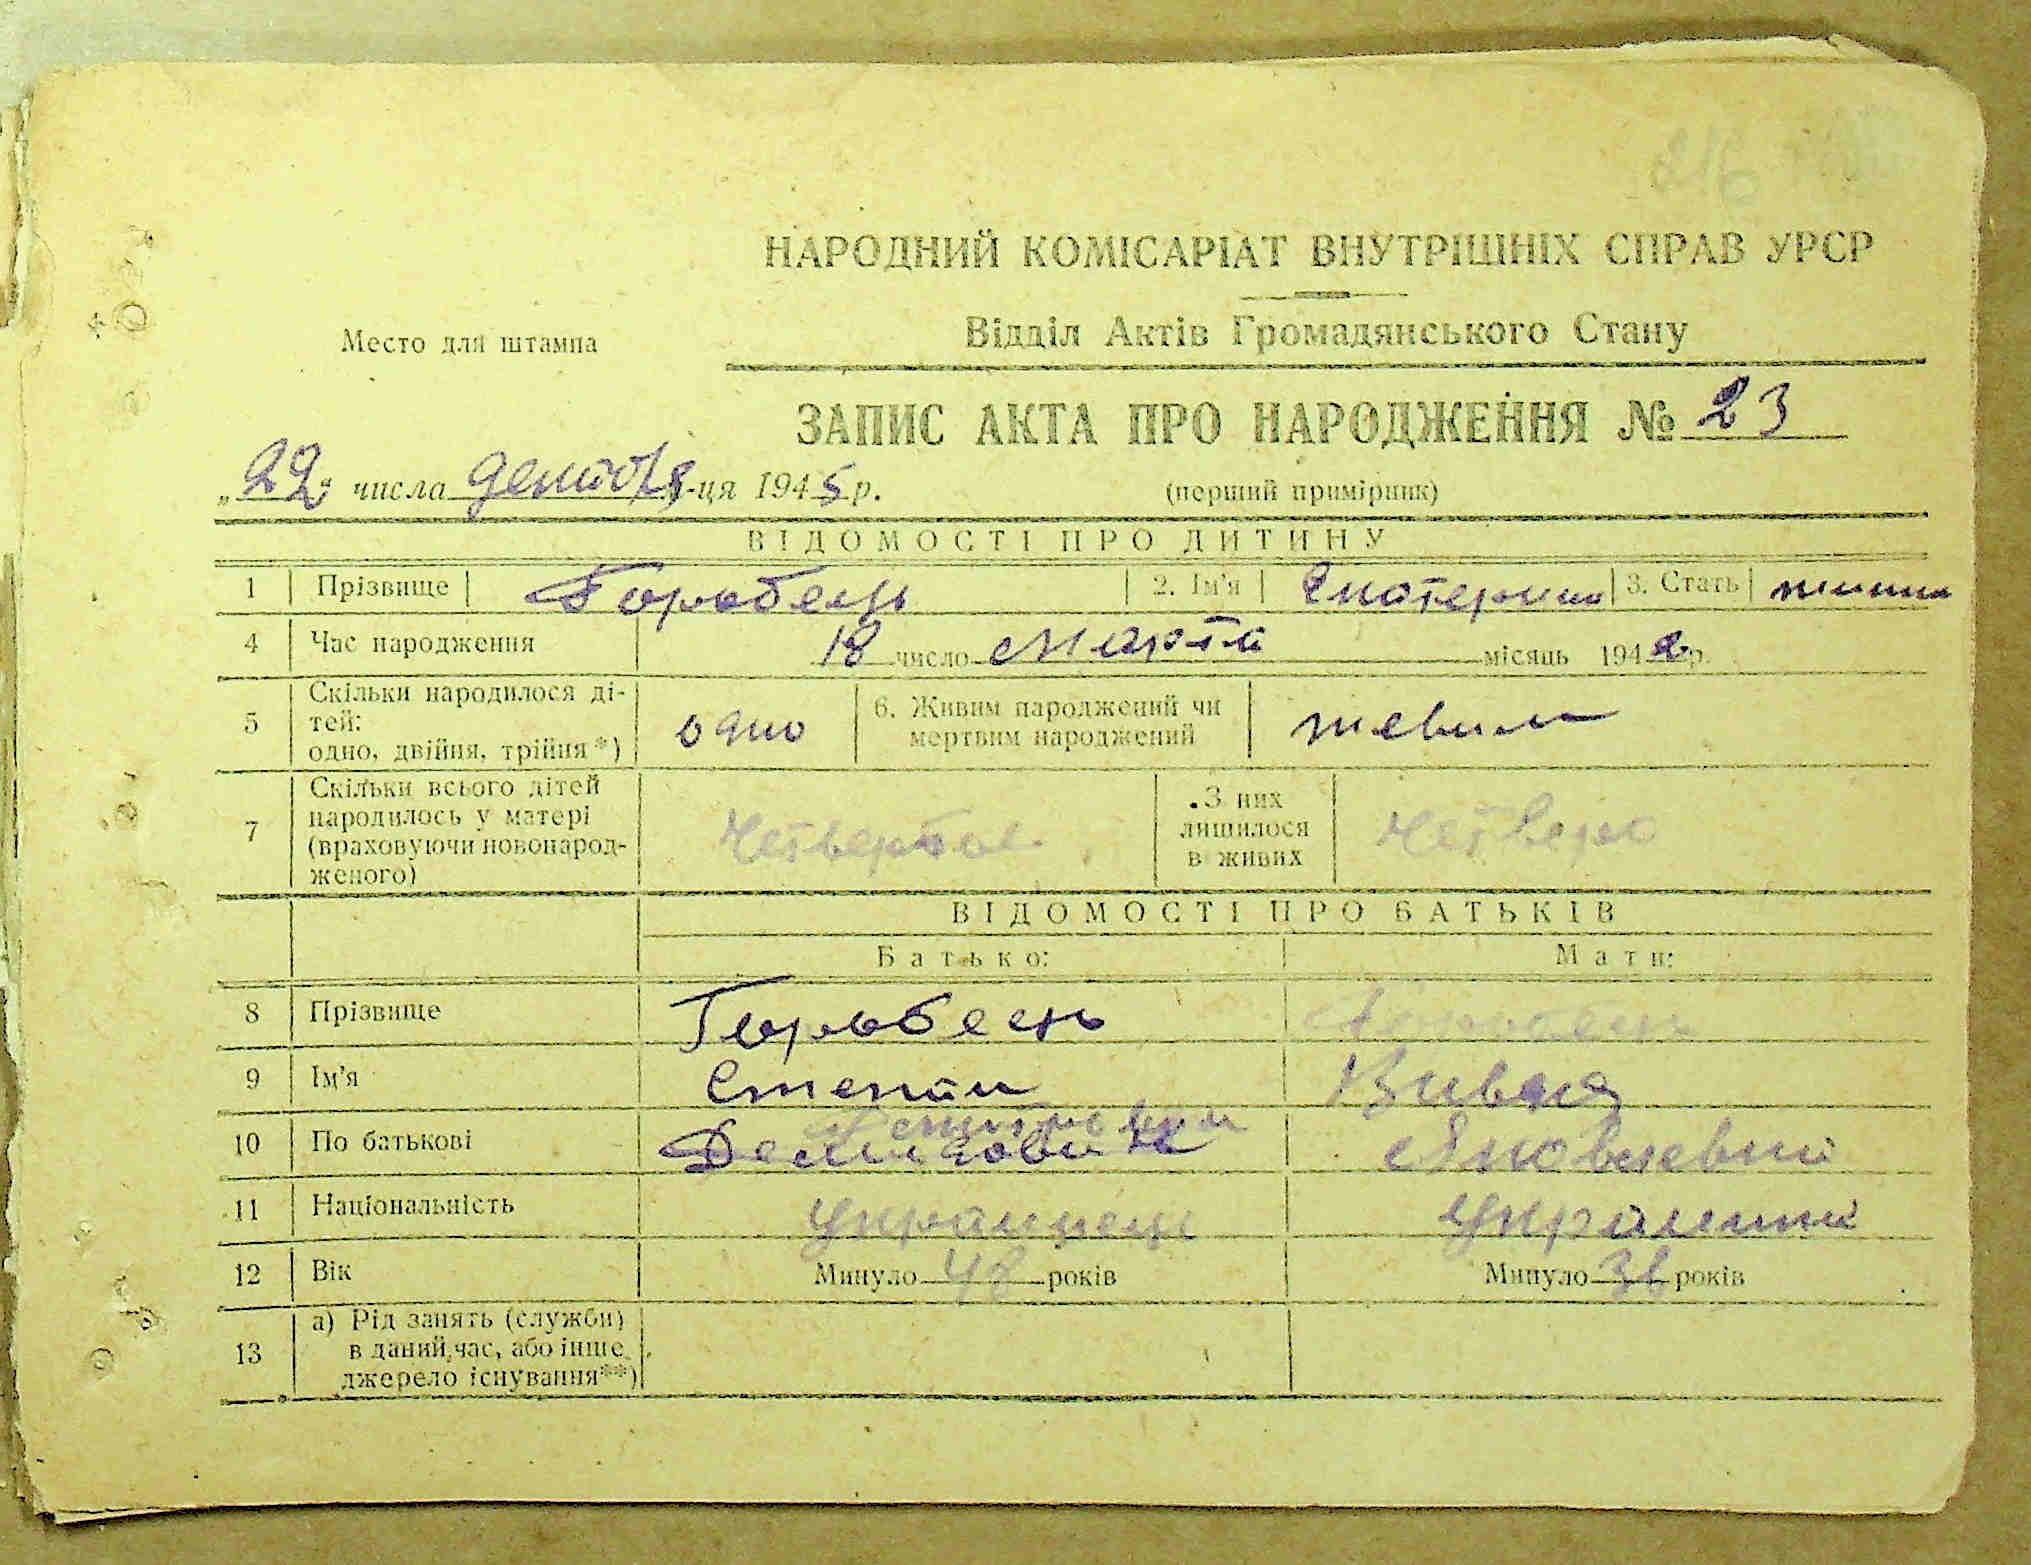 НАРОДНИЙ КОМІСАРІАТ ВНУТРІШНІХ СПРАВ УРСР
Место для штампа
Відділ Актів Громадянського Стану
ЗАПИС АКТА ПРО НАРОДЖЕННЯ № 23
„22“ числа декабря-ця 1945 р.
(перший примірник)
ВІДОМОСТІ ПРО ДИТИНУ
1 Прізвище Горобець 2. Ім'я Екатерина 3. Стать
4 Час народження 18 число марта місяць 1942 р.
5 Скільки народилося ді-
тей:
одно, двійня, трійня*) одно
6. Живим народжений чи
мертвим народжений живим
7 Скільки всього дітей
народилось у матері
(враховуючи новонарод-
женого)
З них
лишилося
в живих четверо
ВІДОМОСТІ ПРО БАТЬКІВ
Батько: Мати:
8 Прізвище Горобець Горобець
9 Ім'я Степан
10 По батькові Денисович Яковлевна
11 Національність Украинец Украинка
12 Вік Минуло 48 років Минуло 36 років
13 а) Рід занять (служби)
в даний час, або інше
джерело існування**)